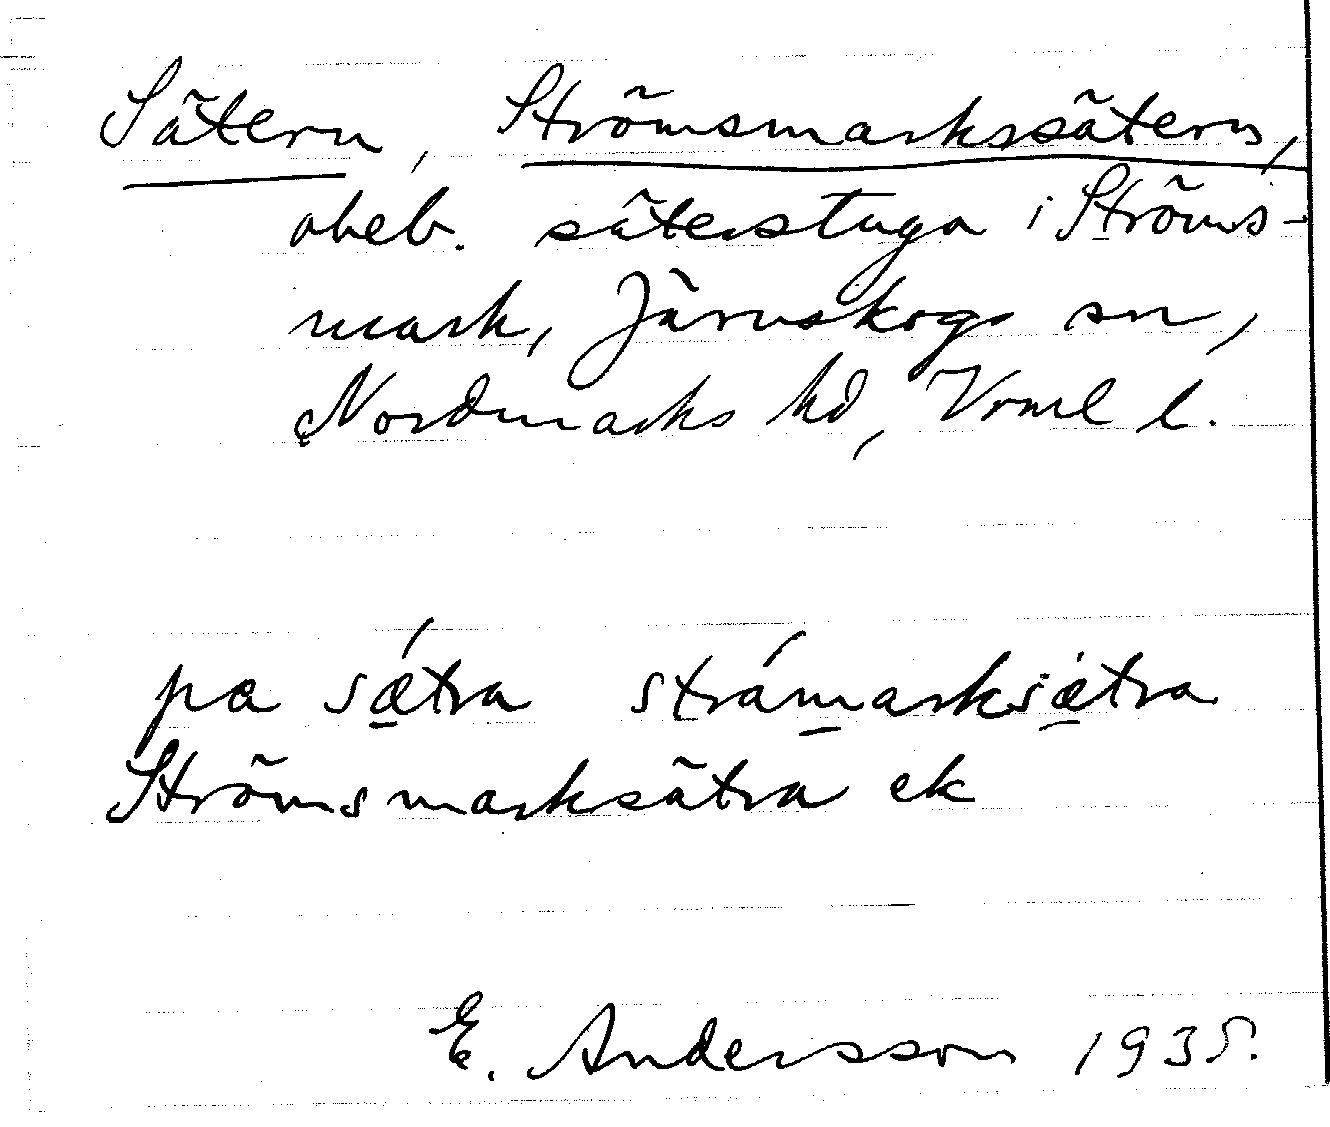 Sätern, Strömsmarkssätern,
obeb. säterstuga i Ströms-
mark, Järnskogs sn,
Nordmarks hd, Vrml l.
pa sǽtra strámarksætra
Strömsmarksätra ek
E. Andersson 1935.